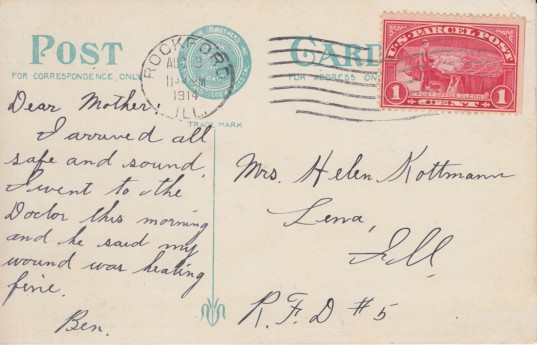 POST CARD
FOR CORRESPONDENCE, ONLY
FOR ADDRESS ON
TRADE MARK
ROCKFORD
AUG 3
1914
ILL.
U.S. PARCEL POST
POST OFFICE CLERK
1 CENT 1
Dear Mother:
I arrived all
safe and sound.
I went to the
Doctor this morning
and he said my
wound was healing
fine.
Ben.
Mrs. Helen Kottmann
Lena,
Ill.
R.F.D #5